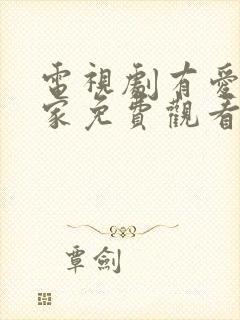 電視劇有愛
家免費觀看
覃劍